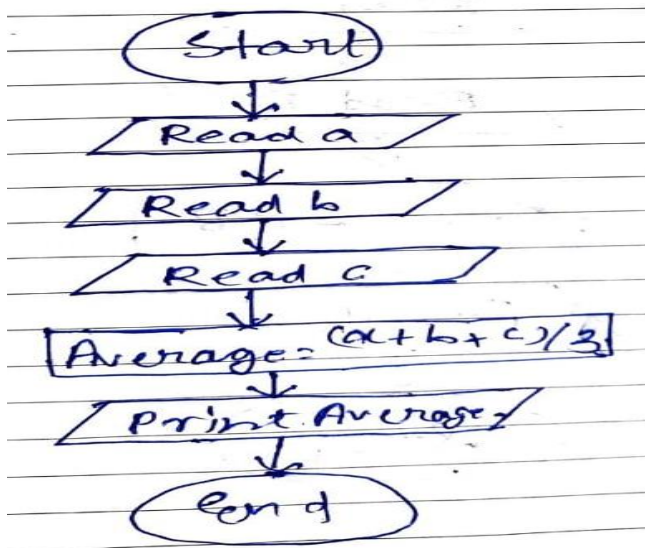 Start
Read a
Read b
Read c
Average = (a+b+c)/3
Print Average
End